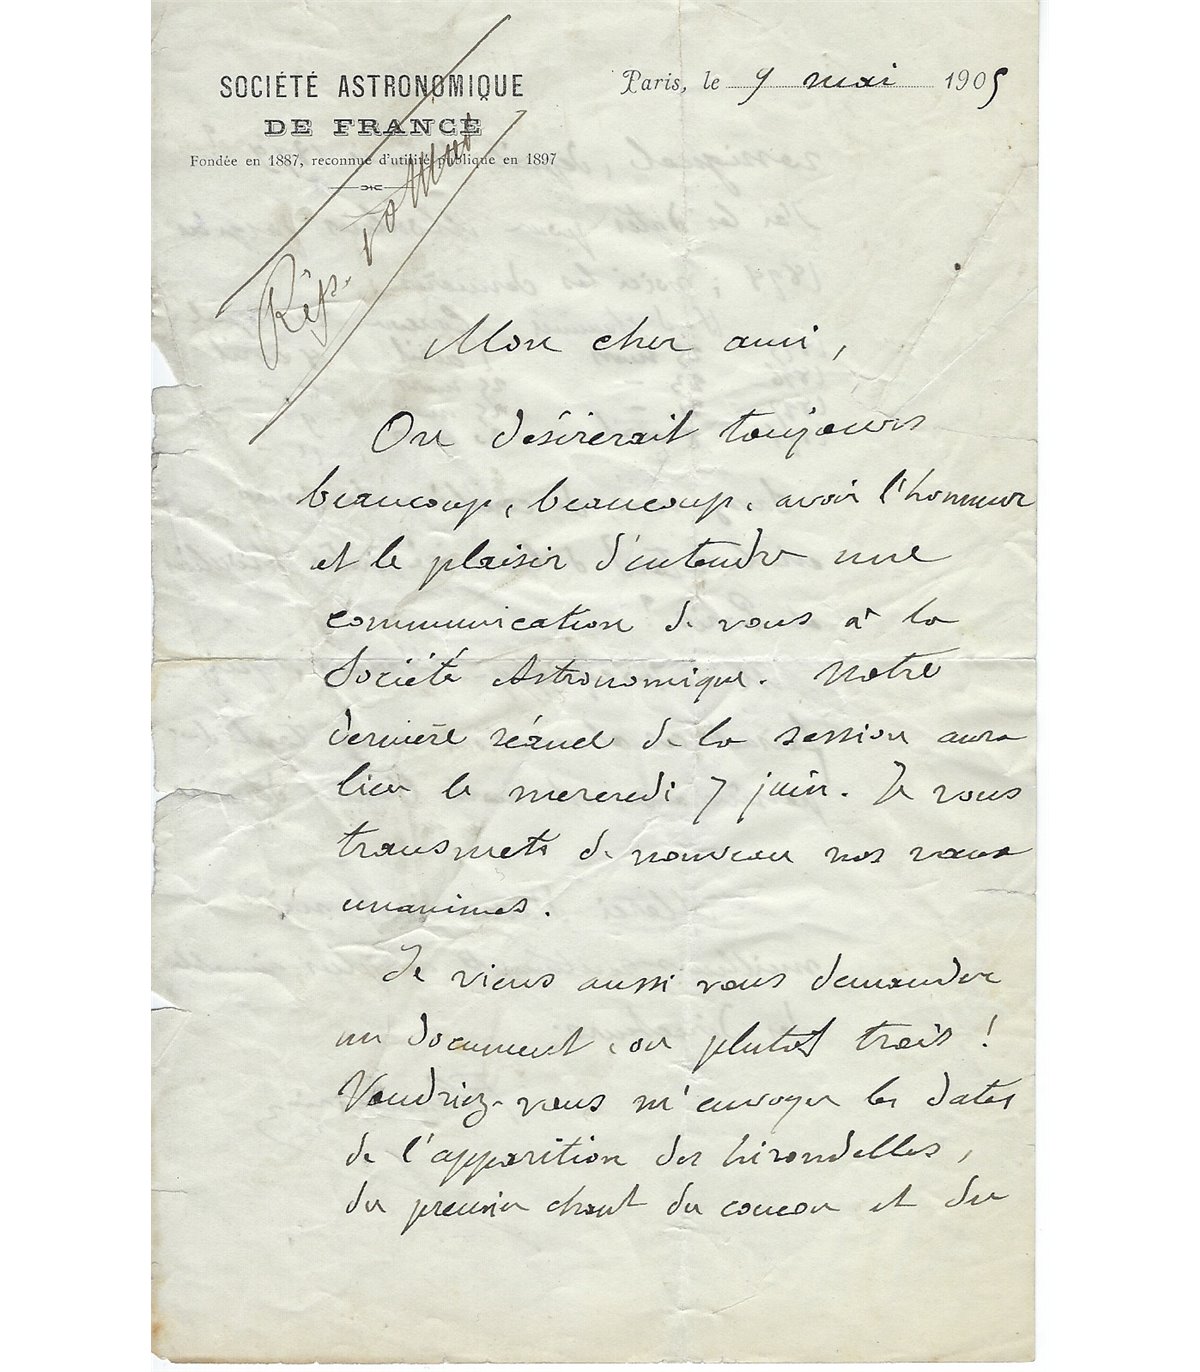 SOCIÉTÉ ASTRONOMIQUE
DE FRANCE
Fondée en 1887, reconnue d'utilité publique en 1897
Paris, le 9 mai 1905
Rép.
Mon cher ami,
On désirerait toujours
beaucoup, beaucoup, avoir l'honneur
et le plaisir d'entendre une
communication de vous à la
Société Astronomique. Notre
dernière séance de la session aura
lieu le mercredi 7 juin. Je vous
transmets de nouveau nos vœux
unanimes.
Je viens aussi vous demander
un document, ou plutôt trois !
Voudriez-vous m'envoyer les dates
de l'apparition des hirondelles,
du premier chant du coucou et du